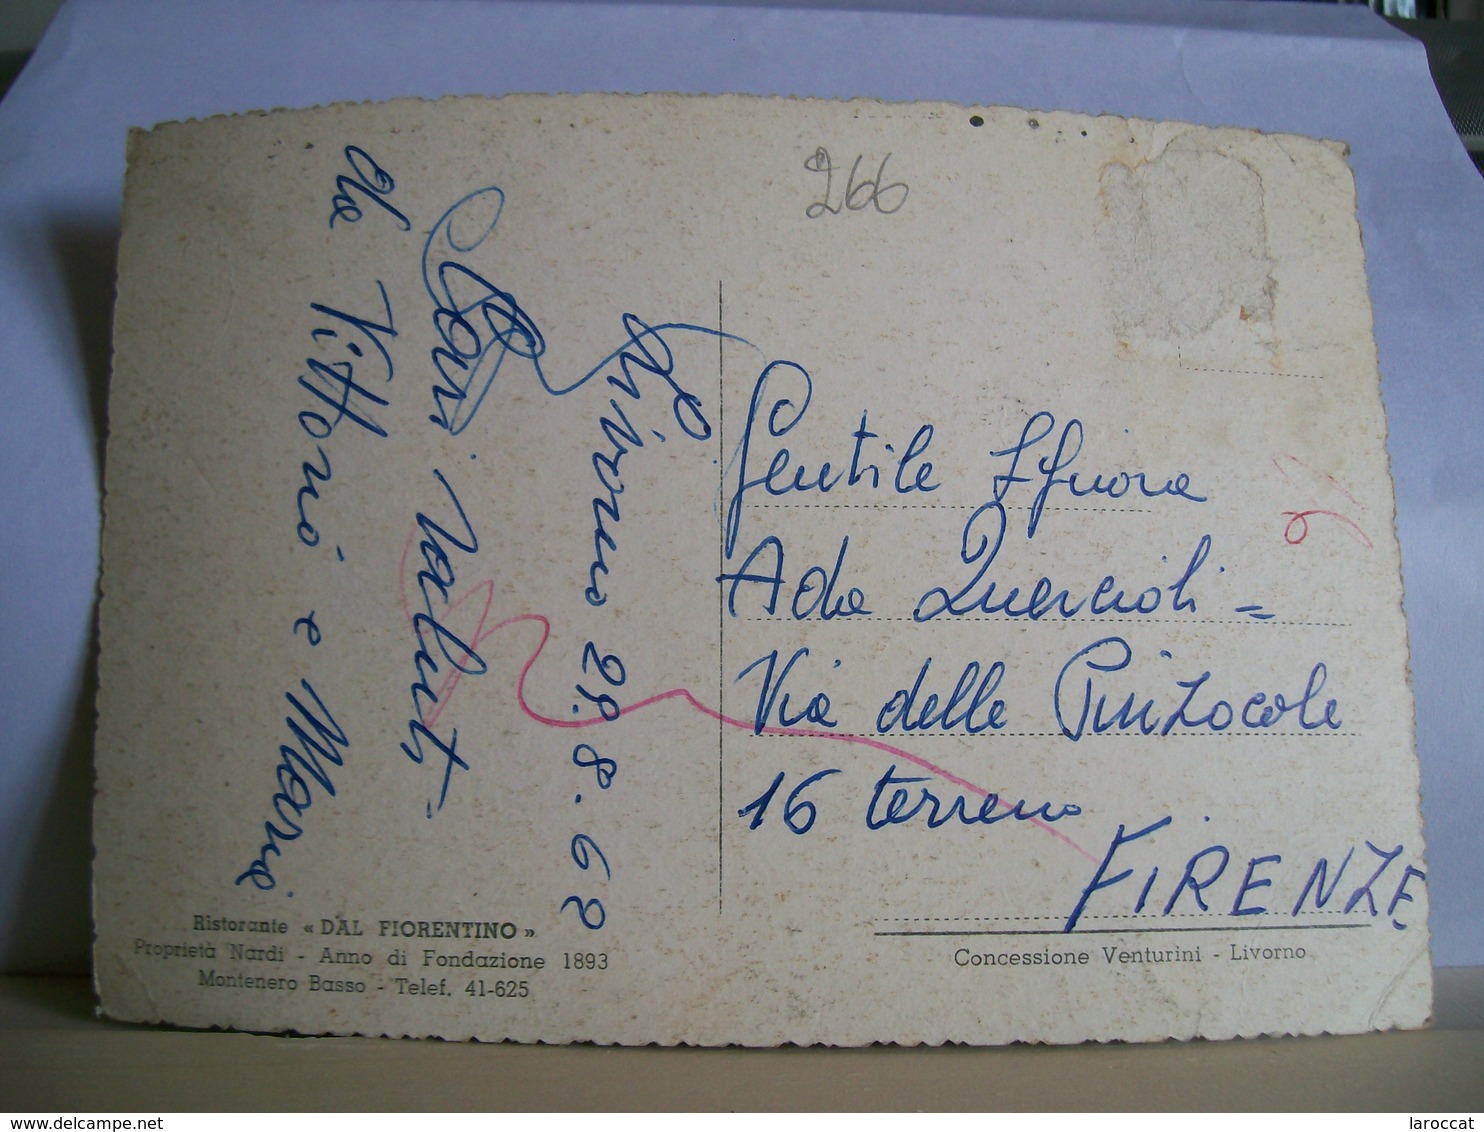 266
Livorno 28.8.62
Cari saluti
da Vittorio e Maria
Gentile Signora
Ada Quercioli =
Via delle Pinzocole
16 terreno
FIRENZE
Ristorante « DAL FIORENTINO »
Proprietà Nardi - Anno di Fondazione 1893
Montenero Basso - Telef. 41-625
Concessione Venturini - Livorno
delcampe.net
laroccat